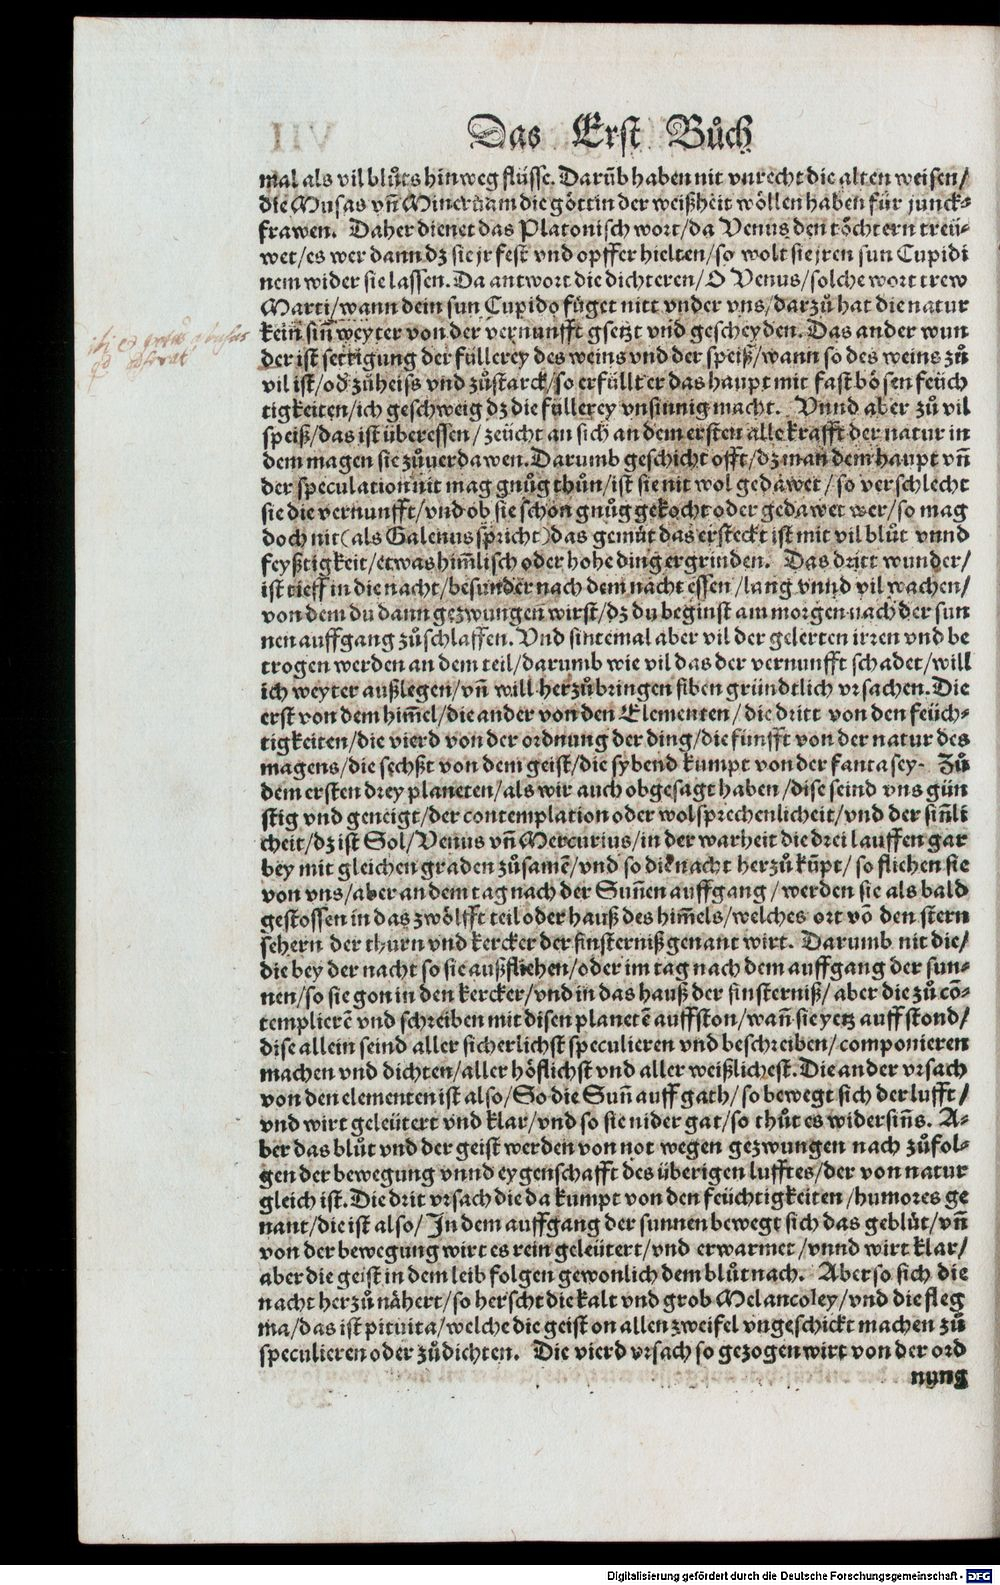 Das Erst Bůch
mal als vil blůts hinweg flüsse. Darūb haben nit vnrecht die alten weisen/
die Musas vñ Mineruam die göttin der weißheit wöllen haben für junck⸗
frawen. Daher dienet das Platonisch wort/da Venus den töchtern treü⸗
wet/es wer dann dz sie jr fest vnd opffer hielten/so wolt sie jren sun Cupidi
nem wider sie lassen. Da antwort die dichteren/O Venus/solche wort trew
Marti/wann dein sun Cupido füget nitt vnder vns/darzů hat die natur
kein sin̄ weyter von der vernunfft gsetzt vnd gescheyden. Das ander wun
der ist settigung der füllerey des weins vnd der speiß/wann so des weins zů
vil ist/od̄ zůheiss vnd zůstarck/so erfüllt er das haupt mit fast bösen feüch
tigkeiten/ich geschweig dz die füllerey vnsinnig macht. Vnnd aber zů vil
speiß/das ist überessen/zeücht an sich an dem ersten alle krafft der natur in
dem magen sie zůuerdawen. Darumb geschicht offt/dz man dem haupt vñ
der speculation nit mag gnůg thůn/ist sie nit wol gedäwet/so verschlecht
sie die vernunfft/vnd ob sie schon gnůg gekocht oder gedawet wer/so mag
doch nit (als Galenus spricht) das gemüt das ersteckt ist mit vil blůt vnnd
feyßtigkeit/etwas him̄lisch oder hohe ding ergrinden. Das dritt wunder/
ist tieff in die nacht/besunder nach dem nacht essen/lang vnnd vil wachen/
von dem du dann gezwungen wirst/dz du beginst am morgen nach der sun
nen auffgang zůschlaffen. Vnd sintemal aber vil der gelerten irren vnd be
trogen werden an dem teil/darumb wie vil das der vernunfft schadet/will
ich weyter außlegen/vñ will herzůbringen siben gründtlich vrsachen. Die
erst von dem him̄el/die ander von den Elementen/die dritt von den feüch⸗
tigkeiten/die vierd von der ordnung der ding/die funfft von der natur des
magens/die sechßt von dem geist/die sybend kumpt von der fantasey. Zů
dem ersten drey planeten/als wir auch obgesagt haben/dise seind vns gün
stig vnd geneigt/der contemplation oder wolsprechenlicheit/vnd der sin̄li
cheit/dz ist Sol/Venus vñ Mercurius/in der warheit die drei lauffen gar
bey mit gleichen graden zůsamē/vnd so die nacht herzů kūpt/so fliehen sie
von vns/aber an dem tag nach der Sun̄en auffgang/werden sie als bald
gestossen in das zwölfft teil oder hauß des him̄els/welches ort vō den stern
sehern der thurn vnd kercker der finsterniß genant wirt. Darumb nit die/
die bey der nacht so sie außfliehen/oder im tag nach dem auffgang der sun⸗
nen/so sie gon in den kercker/vnd in das hauß der finsterniß/aber die zů cō⸗
templierē vnd schreiben mit disen planetē auffston/wañ sie yetz auff stond/
dise allein seind aller sicherlichst speculieren vnd beschreiben/componieren
machen vnd dichten/aller höflichst vnd aller weißlichest. Die ander vrsach
von den elementen ist also/So die Sun̄ auff gath/so bewegt sich der lufft/
vnd wirt geleütert vnd klar/vnd so sie nider gat/so thůt es widersin̄s. A⸗
ber das blůt vnd der geist werden von not wegen gezwungen nach zůfol⸗
gen der bewegung vnnd eygenschafft des überigen lufftes/der von natur
gleich ist. Die drit vrsach die da kumpt von den feüchtigkeiten/humores ge
nant/die ist also/In dem auffgang der sunnen bewegt sich das geblüt/vñ
von der bewegung wirt es rein geleütert/vnd erwarmet/vnnd wirt klar/
aber die geist in dem leib folgen gewonlich dem blůt nach. Aber so sich die
nacht herzů nähert/so herscht die kalt vnd grob Melancoley/vnd die fleg
ma/das ist pituita/welche die geist on allen zweifel vngeschickt machen zů
speculieren oder zůdichten. Die vierd vrsach so gezogen wirt von der ord
nung
Digitalisierung gefördert durch die Deutsche Forschungsgemeinschaft - DFG